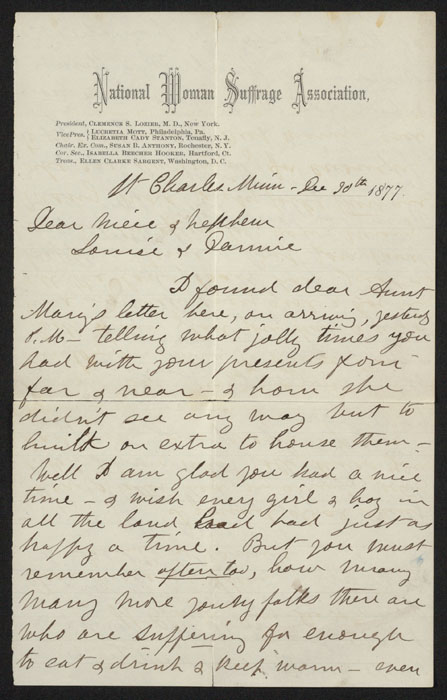 National Woman Suffrage Association,
President, CLEMENCE S. LOZIER, M. D., New York.
Vice Pres. { LUCRETIA MOTT, Philadelphia, Pa.
ELIZABETH CADY STANTON, Tenafly, N. J.
Chair. Ex. Com., SUSAN B. ANTHONY, Rochester, N. Y.
Cor. Sec., ISABELLA BEECHER HOOKER, Hartford, Ct.
Treas., ELLEN CLARKE SARGENT, Washington, D. C.
St Charles Minn - Dec 30th 1877.
Dear Niece & Nephew
Louise &
I found dear Aunt
Mary's letter here, on arriving, yesterday
P. M - telling what jolly times you
had with your presents from
far & near - & how she
didn't see any way but to
build on extra to house them -
Well I am glad you had a nice
time - & wish every girl & boy in
all the land had had just as
happy a time. But you must
remember often too, how many
many more young folks there are
who are suffering for enough
to eat & drink & keep warm - even